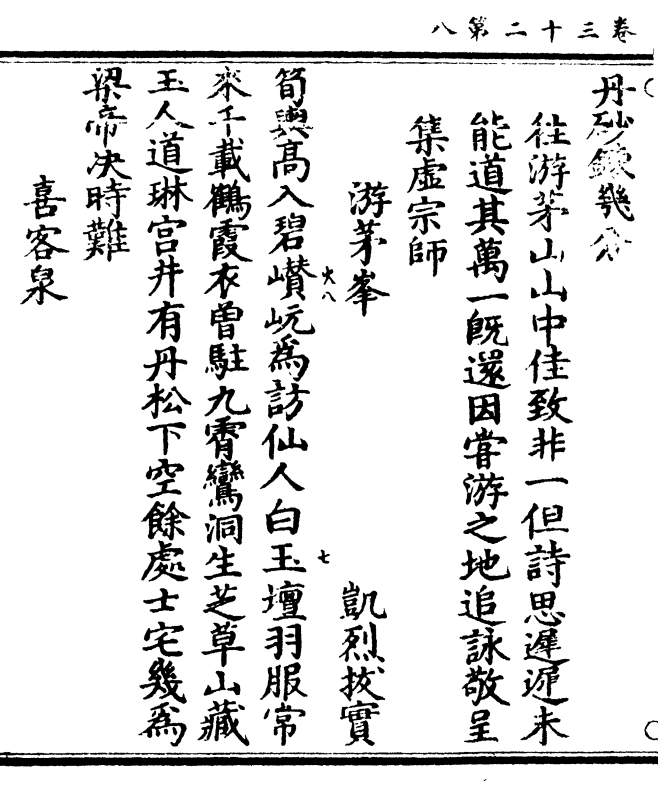 卷三十二第八
丹砂鍊幾分
往游茅山山中佳致非一但詩思遲遲未
能道其萬一旣還因嘗游之地追詠敬呈
集虛宗師
游茅峯
凱烈拔實
筍輿高入碧巑岏爲訪仙人白玉壇羽服常
來千載鶴霞衣曾駐九霄鸞洞生芝草山藏
玉人道琳宫井有丹松下空餘處士宅幾爲
梁帝决時難
喜客泉
火八
七